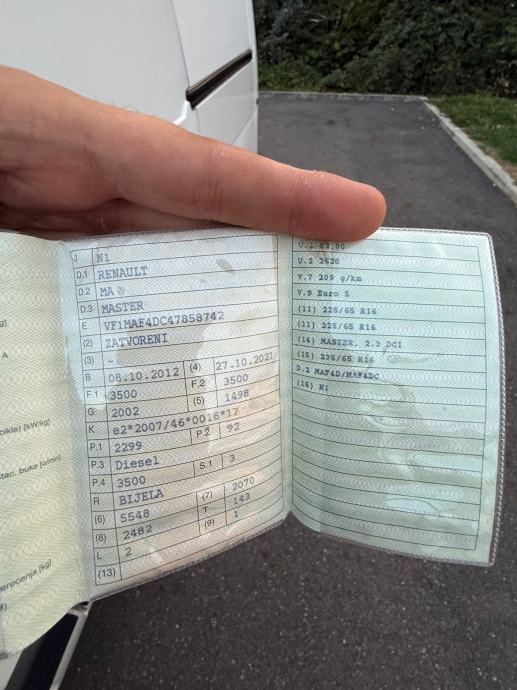 J N1
D.1 RENAULT
D.2 MA
D.3 MASTER
E VF1MAF4DC47858742
(2) ZATVORENI
(3) -
B 08.10.2012 (4) 27.10.2021
F.1 3500 F.2 3500
G 2002 (5) 1498
K e2*2007/46*0016*17
P.1 2299 P.2 92
P.3 Diesel
P.4 3500 S.1 3
R BIJELA (7) 2070
(6) 5548 T 143
(8) 2482 (9) 1
L 2
(13)
U.1 82,00
U.2 2625
V.7 209 g/km
V.9 Euro 5
(11) 225/65 R16
(11) 225/65 R16
(14) MASTER, 2.3 DCI
(15) 235/65 R16
D.2 MAF4D/MAF4DC
(16) N1
A
[kW/kg]
buke
[kg]